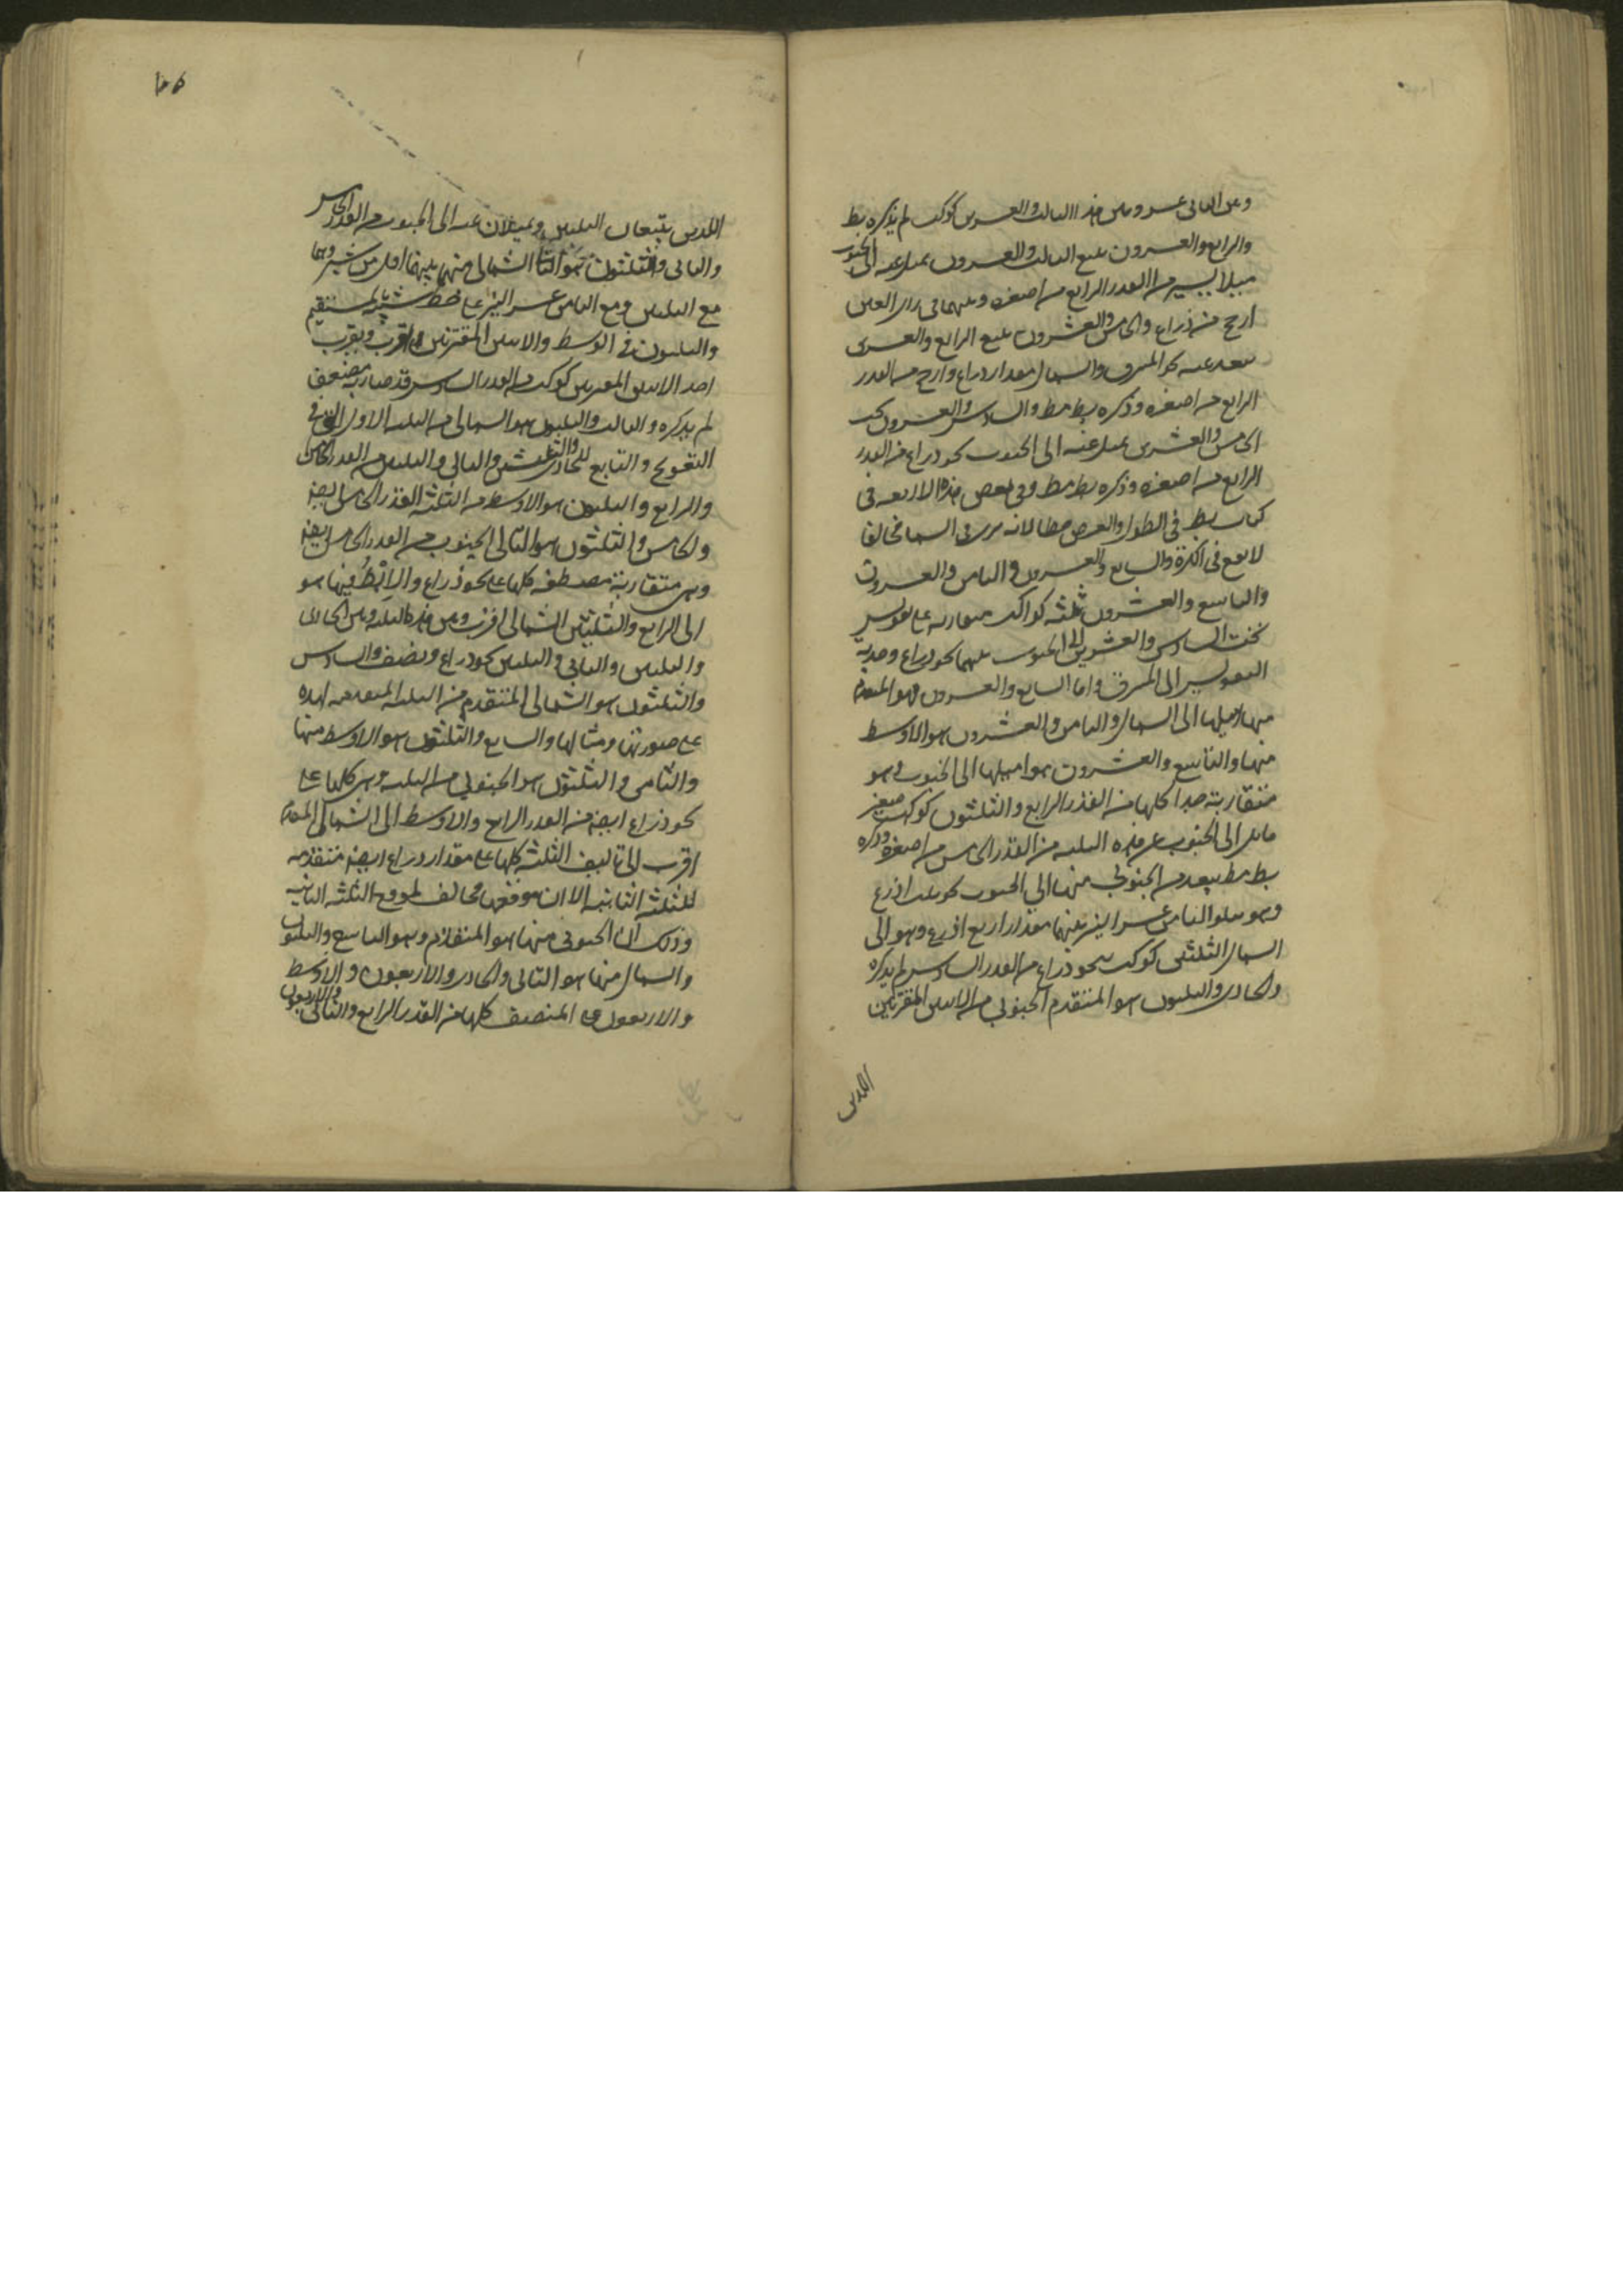 وعن الثانى عشر وبين هذا الثالث والعشرين كوكب لم يذكره بط
والرابع والعشرون يتبع الثالث والعشرون يميل عنه الى الجنوب
ميلا يسير من القدر الرابع من اصغره وبينهما فى رأى العين
ارجح من ذراع والخامس والعشرون يتبع الرابع والعشرى
يبعد عنه نحو المشرق والشمال مقدار ذراع وارجح من القدر
الرابع من اصغره وذكره بطـ مط والسادس والعشرون تحت
الخامس والعشرين يميل عنه الى الجنوب نحو ذراع من القدر
الرابع من اصغره وذكره بط مط وفى بعض هذه الاربعه فى
كتاب بط فى الطول والعرض خطا لانه يرى فى السما مخالفا
لا يقع فى الكرة والسابع والعشرون و الثامن والعشرون
والتاسع والعشرون ثلثه كواكب متقاربه على تقويس
تحت السادس والعشرين الى الجنوب بينهما نحو ذراع وحدبه
التقويس الى المشرق واما السابع والعشرون فهو المتقدم
منها اميلها الى الشمال والثامن والعشرون هو الاوسط
منها والتاسع والعشرون هو اميلها الى الجنوب وهو
متقاربة جدا كلها من القدر الرابع والثلثون كوكب صغير
مايل الى الجنوب عن هذه الثلثه من القدر الخامس من اصغره وذكره
بط مط يبعد من الجنوبى منها الى الجنوب نحو ثلث اذرع
وهو يتلو الثامن عشر النير بينهما مقدار اربع اذرع وهو الى
الشمال الثلثى كوكب نحو ذراع من القدر السادس لم يذكره
والحادى والثلثون هو المتقدم الجنوبى من الاثنين المقترنين
اللذين
١٠٥
اللذين يتبعان الثلثين ويميلان عنه الى الجنوب من القدر الخامس
والثانى والثلثون هو التالى الشمالى منهما بينهما اقل من شبر وهما
مع الثلثين ومع الثامن عشر النير على خط شبيه بالمستقيم
والثلثون فى الوسط والاثنين المقترنين اقرب وبقرب
احد الاثنين المقترنين كوكب من القدر السادس قد صار به مضعف
لم يذكره و الثالث والثلثون هو الشمالى من الثلثه الاول التى فى
التعويج والتابع للحادى والثلثين والثانى والثلثين من القدر الخامس
والرابع والثلثون هو الاوسط من الثلثه القدر الخامس ايضا
والخامس والثلثون هو التالى الجنوب من القدر الخامس ايضا
وهى متقاربة مصطفه كلها على نحو ذراع والاوسط فيها هو
الى الرابع والثلثين الشمالى اقرب وبين هذه الثلثه وبين الحادى
والثلثين والثانى و الثلثين نحو ذراع ونصف والسادس
والثلثون هو الشمالى المتقدم من الثلثه المتقدمه لهذه
على صورتها ومثالها والسابع والثلثون هو الاوسط منها
والثامن والثلثون هو الجنوبى من الثلثه وهى كلها على
نحو ذراع ايضا من القدر الرابع والاوسط الى الشمالى المتقدم
اقرب الى تاليف الثلثه كلها على مقدار ذراع ايضا متقدمه
للثلثه الثانيه الا ان موقعها مخالف لموقع الثلثه الثانيه
وذلك ان الجنوبى منها هو المتقدم وهو التاسع والثلثون
والشمالى منها هو التالى والحادى والاربعون و الاوسط
والاربعون على المنصف كلها من القدر الرابع والثانى والاربعون